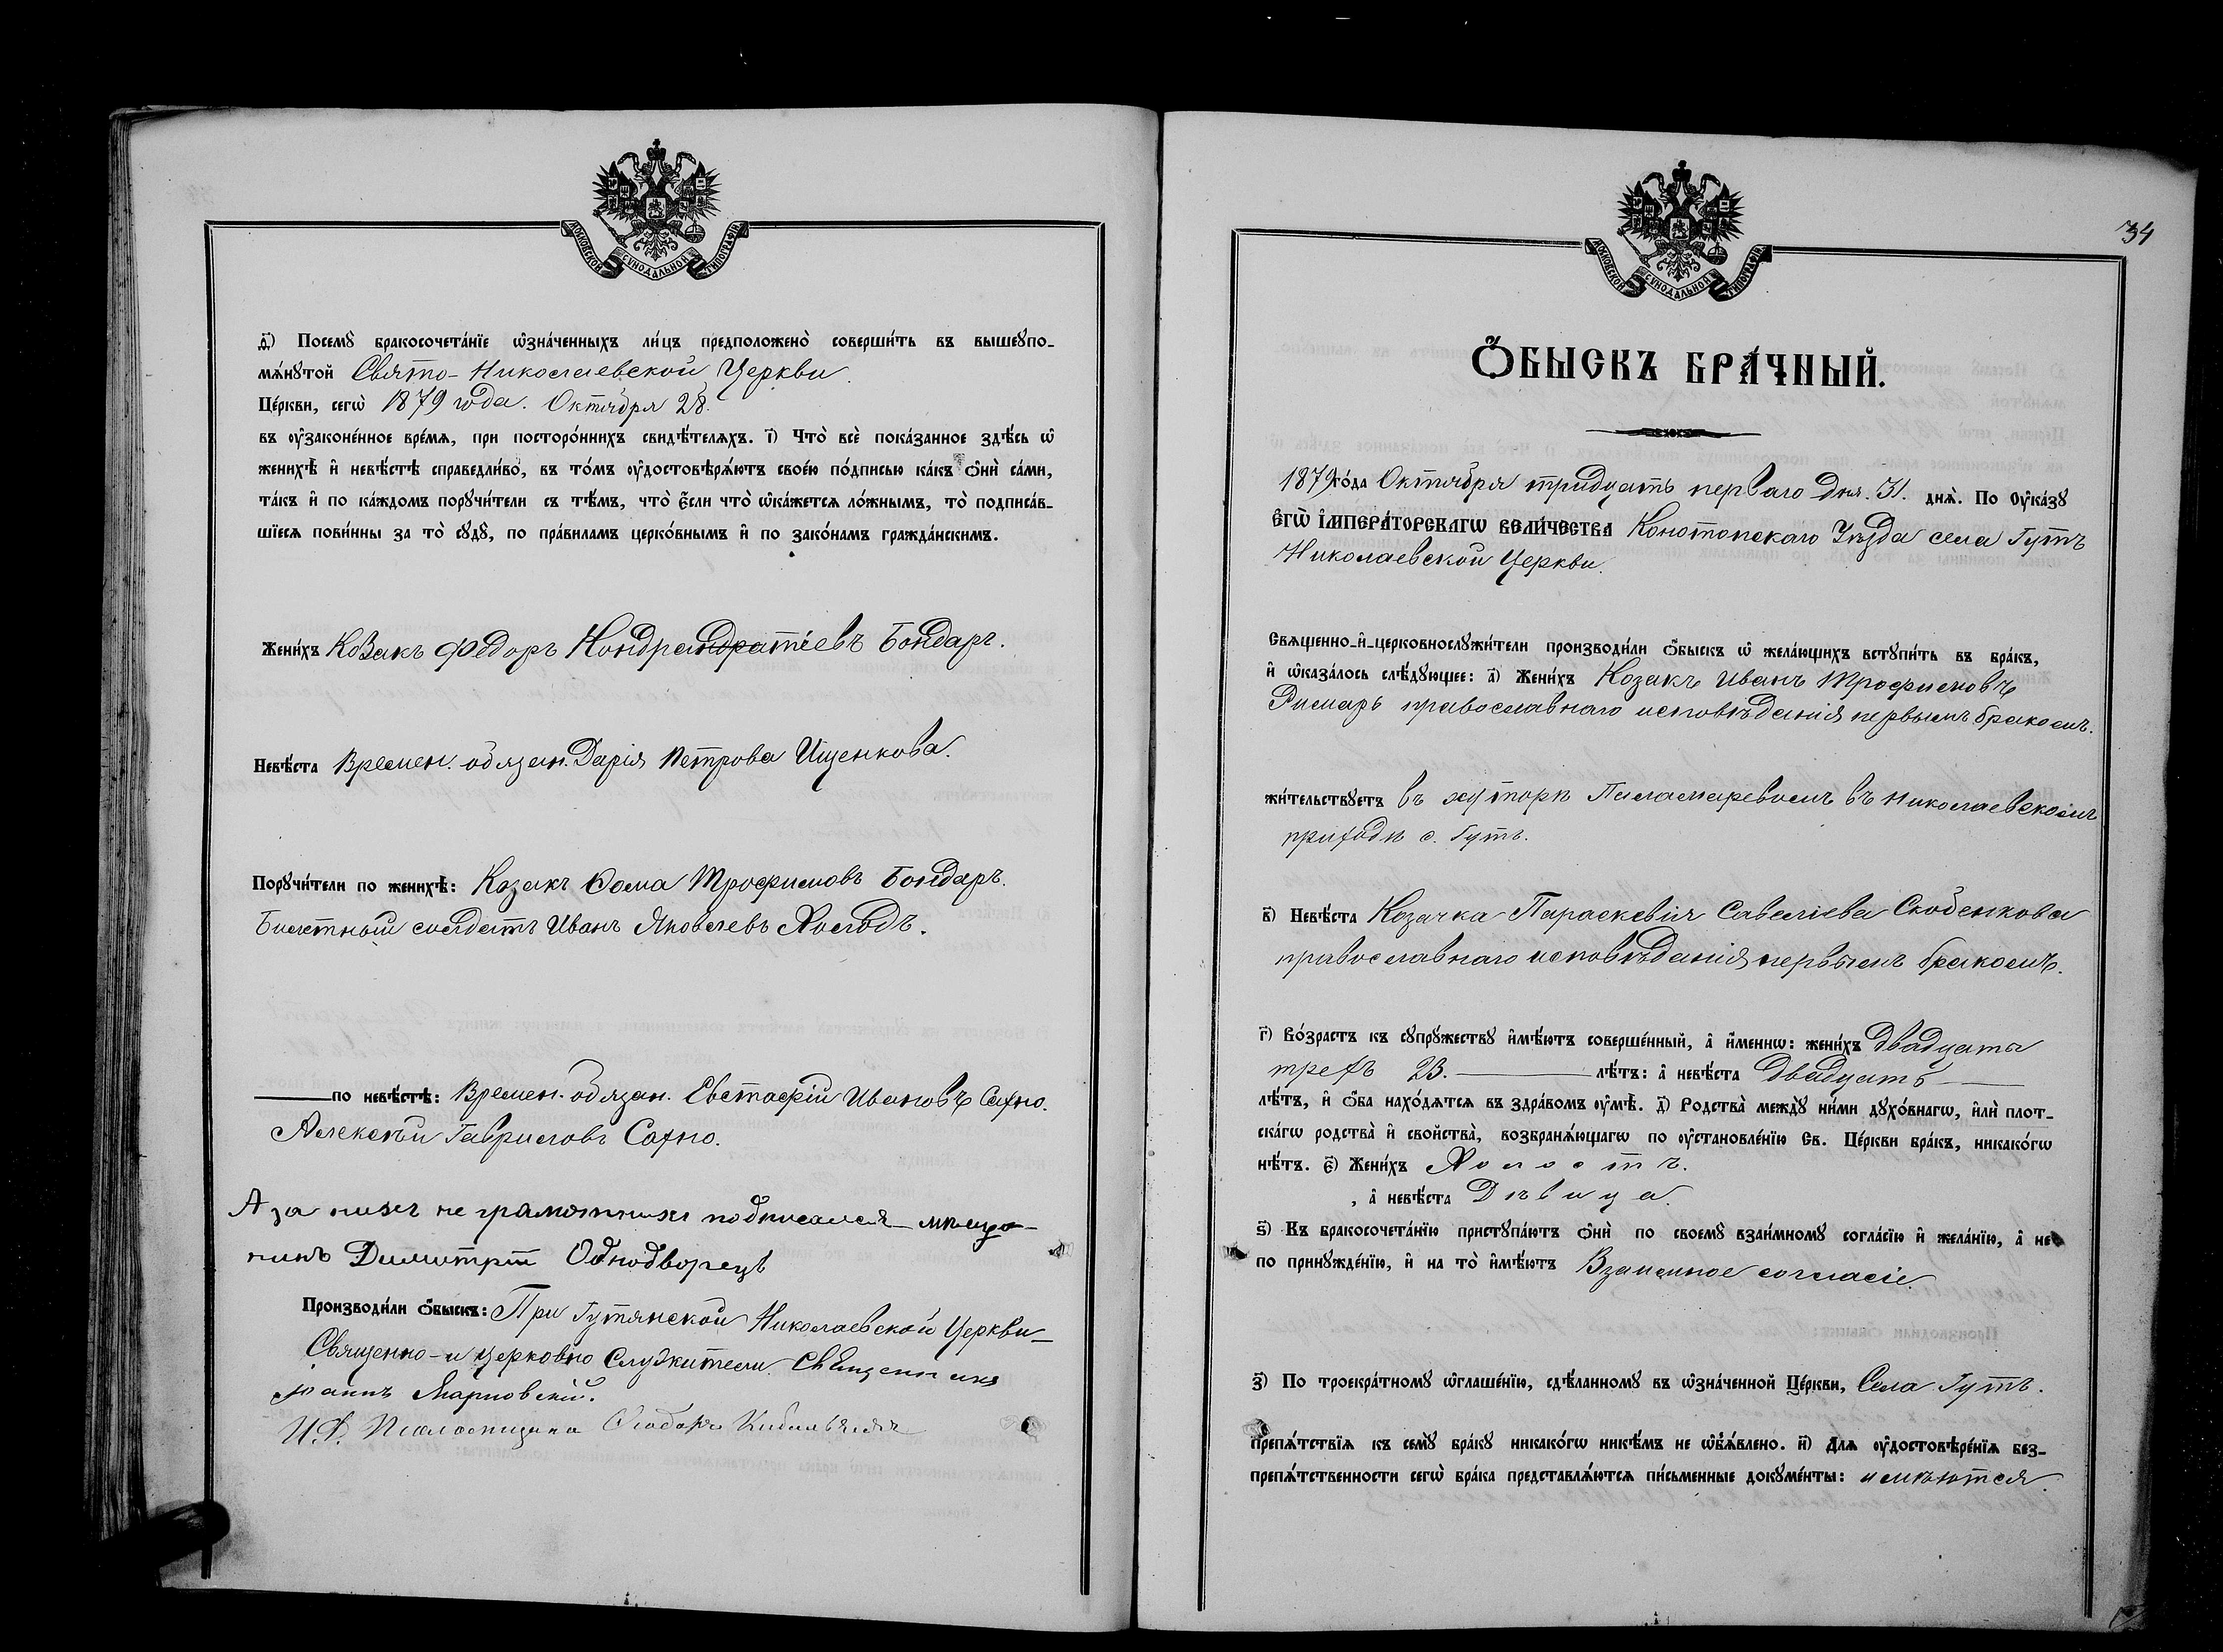 МОСКОВСКОЙ СѴНОДАЛЬНОЙ ТИПОГРАФІИ
ѳ҃) Посемꙋ̀ бракосочета́нїе ѡ҆зна́ченныхъ ли́цъ предположено̀ соверши́ть въ вышеꙋпо-
мѧ́нꙋтой Свято-Николаевской Церкви.
Це́ркви, сегѡ̀ 1879 года. Октября 28.
въ ᲂу҆законе́нное вре́мѧ, при посторо́ннихъ свидѣ́телѧхъ. і҃) Что̀ всѐ пока́занное здѣ́сь ѡ҆
женихѣ̀ и҆ невѣ́стѣ справедли́во, въ то́мъ ᲂу҆достовѣрѧ́ютъ свое́ю по́дписью ка́къ ѻ҆нѝ са́ми,
та́къ и҆ по ка́ждомъ порꙋчи́тели съ тѣ́мъ, что̀ є҆́сли что̀ ѡ҆ка́жетсѧ ло́жнымъ, то̀ подписа́в-
шїесѧ пови́нны за то̀ сꙋдꙋ̀, по пра́виламъ церко́внымъ и҆ по зако́намъ гражда́нскимъ.
Жени́хъ Козакъ Федоръ Кондрандратіевъ Бондарь.
Невѣ́ста Времен. обязан. Дарія Петрова Ищенкова.
Порꙋчи́тели по женихѣ̀: Козакъ Фома Трофимовъ Бондарь.
Билетный солдатъ Иванъ Яковлевъ Холодъ.
по невѣ́стѣ: Времен. обязан. Евстафій Ивановъ Сахно.
Алексѣй Гавриловъ Сахно.
А за нихъ не грамотныхъ подписался мѣща-
нинъ Димитрій Однодворецъ
Производи́ли ѻ҆́быскъ: При Гутянской Николаевской Церкви
Священно-и Церковно Служители. Священникъ
Іоаннъ
И. Д. Псаломщика Ѳеодоръ
34
МОСКОВСКОЙ СѴНОДАЛЬНОЙ ТИПОГРАФІИ
Ѻ҆́БЫСКЪ БРА́ЧНЫЙ.
1879 го́да Октября тридцать перваго Дня. 31. днѧ̀. По Оу҆ка́зꙋ
Є҆ГѠ̀ І҆МПЕРА́ТОРСКАГѠ ВЕЛИ́ЧЕСТВА Конотопскаго Уѣзда села Гутъ
Николаевской Церкви.
Свѧщенно-и҆-церковнослꙋжи́тели производи́ли ѻ҆́быскъ ѡ҆ жела́ющихъ встꙋпи́ть въ бра́къ,
и҆ ѡ҆каза́лось слѣ́дꙋющее: а҃) Жени́хъ Козакъ Иванъ Трофимовъ
Римарь православнаго исповѣданія первымъ бракомъ.
жи́тельствꙋетъ въ хуторѣ Паламаревомъ въ Николаевскомъ
приходѣ с. Гутъ.
в҃) Невѣ́ста Козачка Параскевія Савеліева Скобенкова
православнаго исповѣданія первымъ бракомъ.
г҃) Во́зрастъ къ сꙋпрꙋ́жествꙋ и҆мѣ́ютъ соверше́нный, а҆ и҆́меннѡ: жени́хъ двадцати
трехъ 23. лѣ́тъ: а҆ невѣ́ста Двадцать
лѣ́тъ, и҆ ѻ҆́ба нахо́дѧтсѧ въ здра́вомъ ᲂу҆мѣ̀. д҃) Родства̀ междꙋ̀ ни́ми дꙋхо́внагѡ, и҆лѝ плот-
ска́гѡ родства̀ и҆ свойства̀, возбранѧ́ющагѡ по ᲂу҆становле́нїю Св. Це́ркви бра́къ, никако́гѡ
нѣ́тъ. є҃) Жени́хъ Холостъ.
, а҆ невѣ́ста Дѣвица.
ѕ҃) Къ бракосочета́нїю пристꙋпа́ютъ ѻ҆нѝ по своемꙋ̀ взаи́мномꙋ согла́сїю и҆ жела́нїю, а҆ не
по принꙋжде́нїю, и҆ на то̀ и҆мѣ́ютъ Взаимное согласіе.
з҃) По троекра́тномꙋ ѡ҆глаше́нїю, сдѣ́ланномꙋ въ ѡ҆зна́ченной Це́ркви, Села Гутъ.
препѧ́тствїѧ къ семꙋ̀ бра́кꙋ никако́гѡ никѣ́мъ не ѡ҆б̾ѧ́влено. и҃) Длѧ ᲂу҆достовѣре́нїѧ без-
препѧ́тственности сегѡ̀ бра́ка представлѧ́ютсѧ пи́сьменные докꙋме́нты: имѣются.